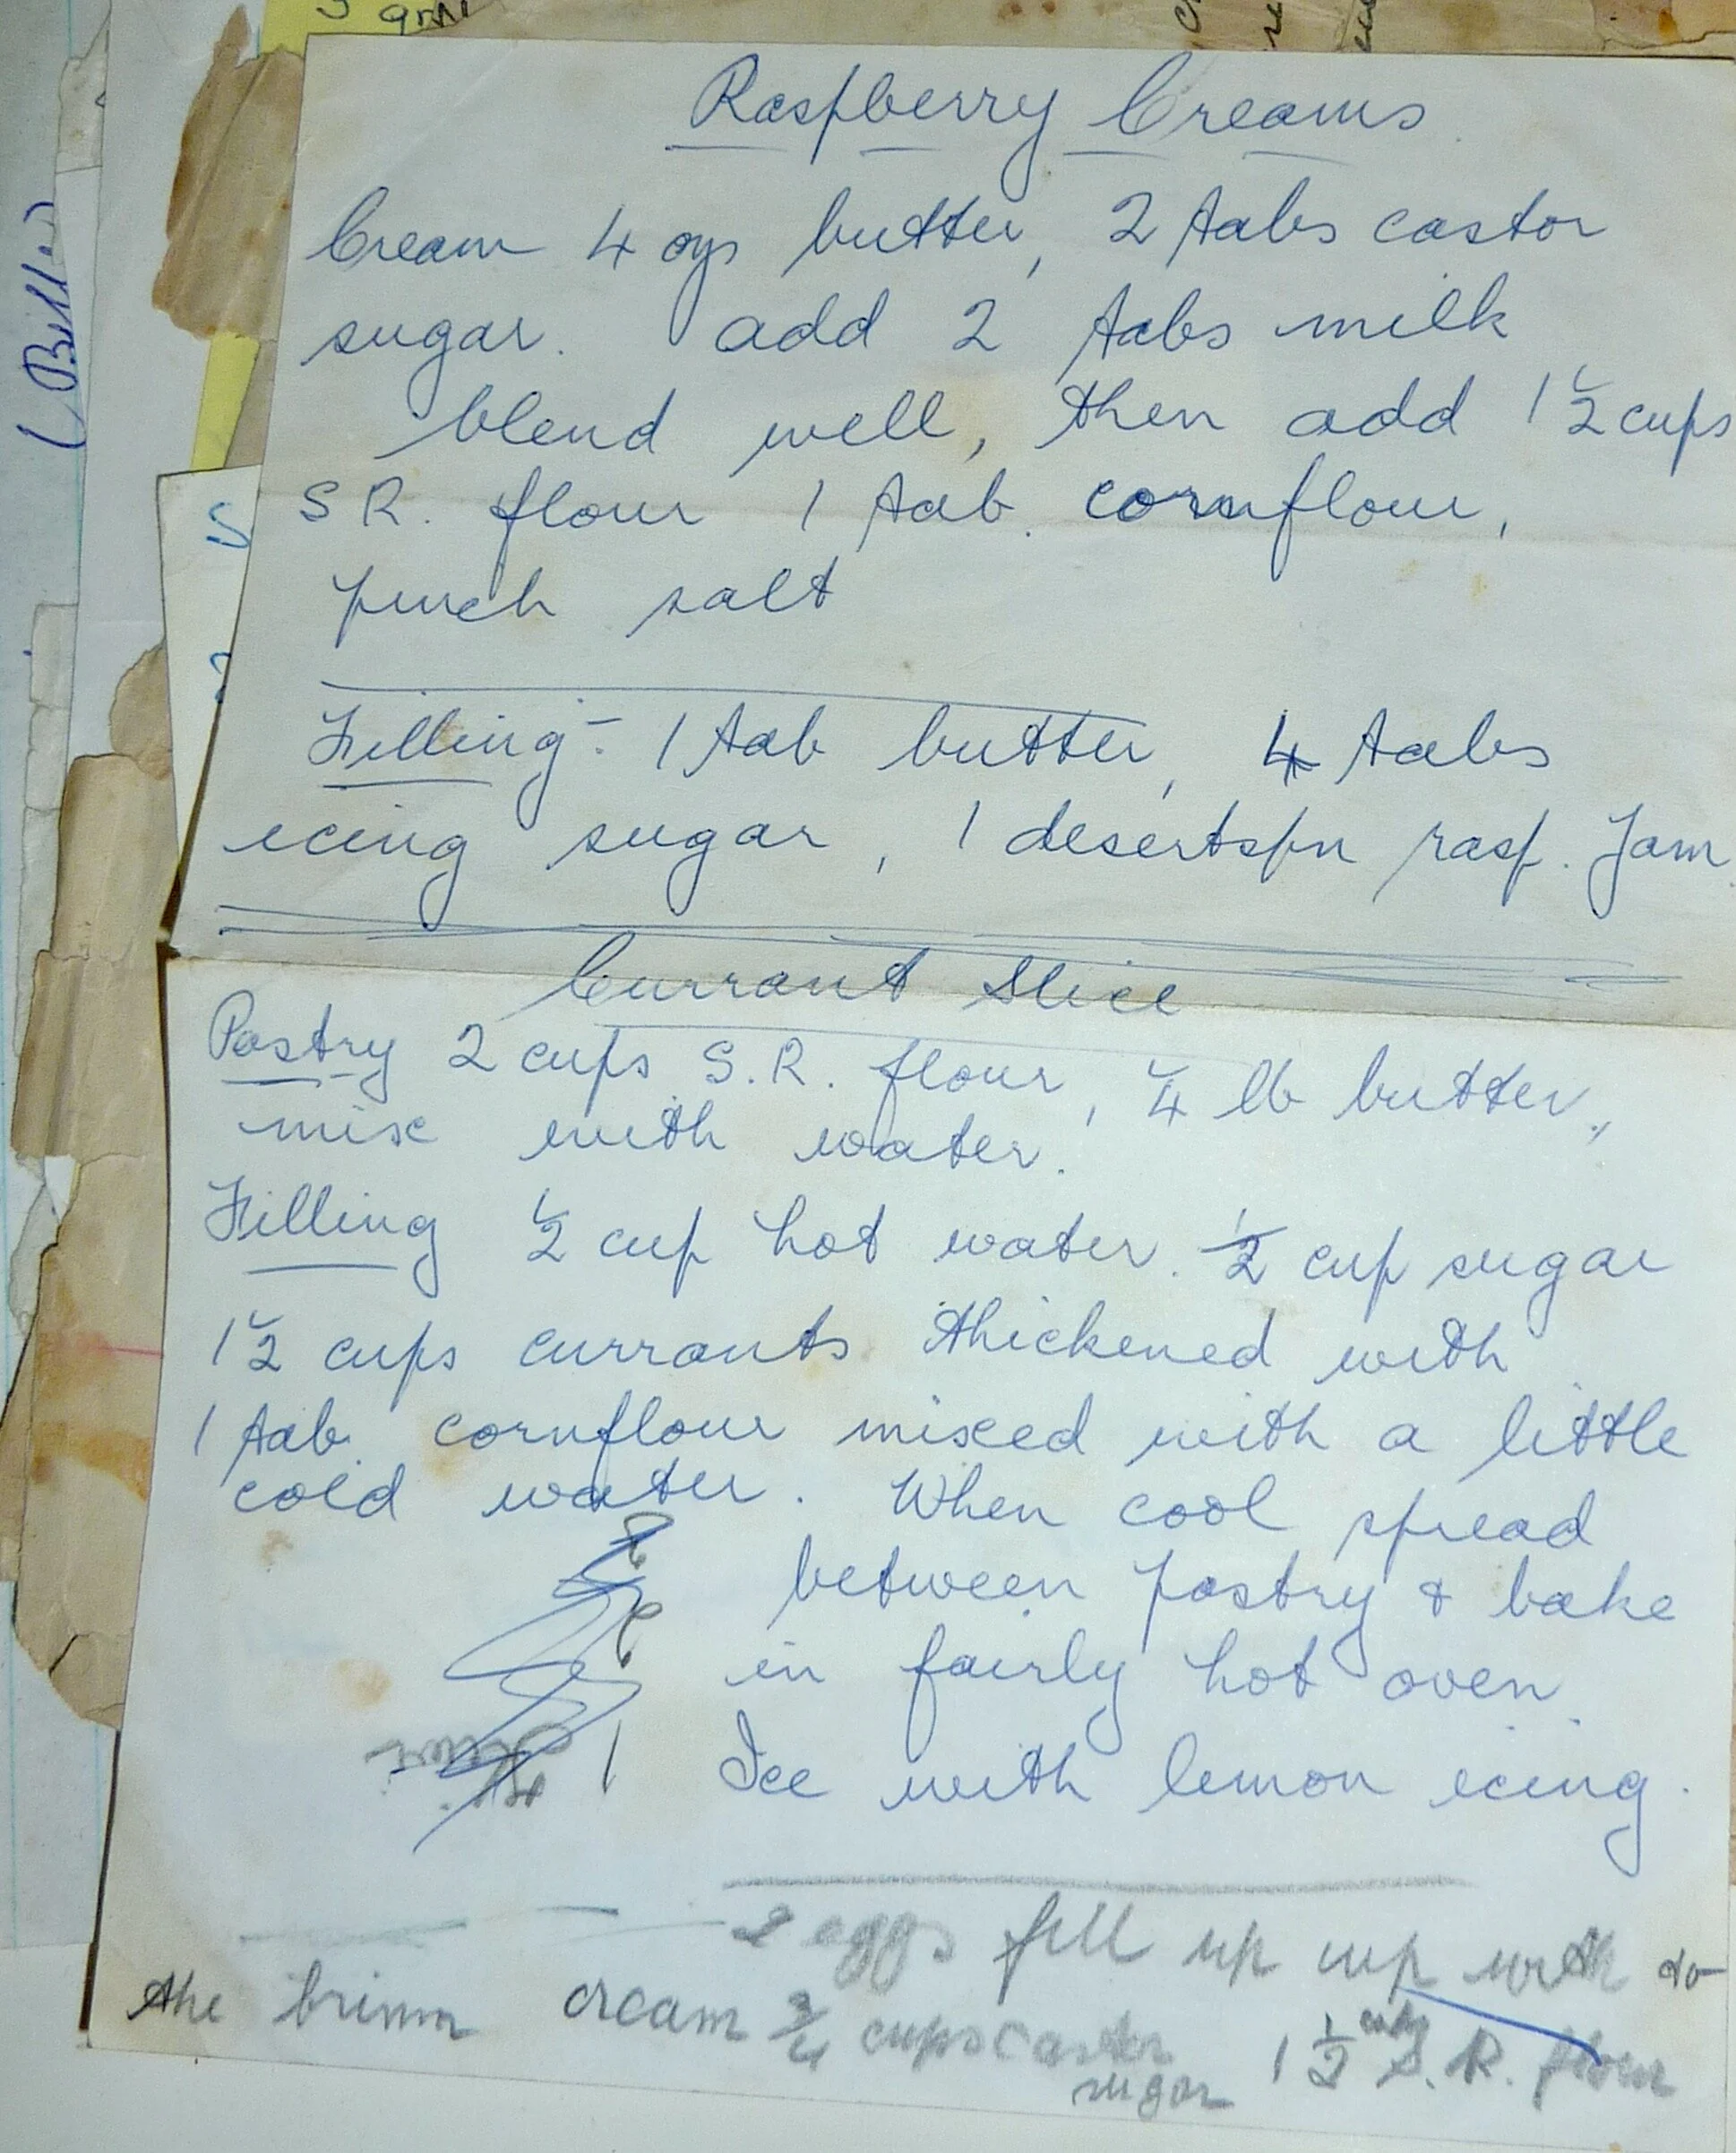 Raspberry Creams
Cream 4 ozs butter, 2 tabs castor
sugar. add 2 tabs milk
blend well, then add 1 1/2 cups
S R. flour 1 tab. cornflour,
pinch salt
Filling:- 1 tab butter, 4 tabs
icing sugar, 1 desertspn rasp. Jam
Currant Slice
Pastry 2 cups S.R. flour, 1/4 lb butter,
mix with water.
Filling 1/2 cup hot water. 1/2 cup sugar
1 1/2 cups currants thickened with
1 tab. cornflour mixed with a little
cold water. When cool spread
between pastry & bake
in fairly hot oven.
Ice with lemon icing.
2 eggs fill up cup with to
the brim cream 3/4 cups caster sugar 1 1/2 cups S.R. flour
(Bill